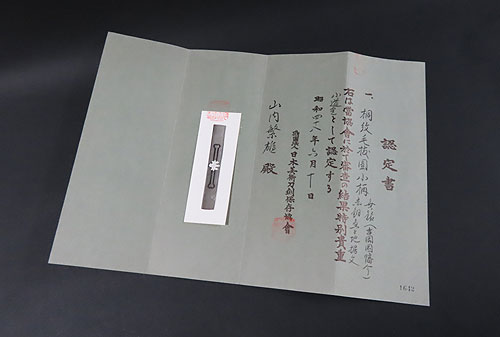 認定書
一、桐紋毛抜図小柄
右は當協會に於て審査の結果特別貴重
小道具として認定する
昭和四十八年六月十日
財團法人日本美術刀剣保存協會
山内繁雄殿
1642